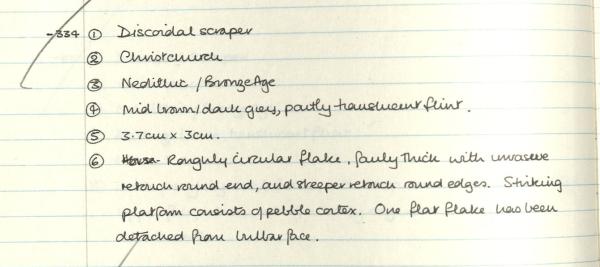 -334 ① Discoidal scraper
② Christchurch
③ Neolithic / Bronze Age
④ Mid brown/dark grey, partly translucent flint.
⑤ 3.7cm x 3cm.
⑥ Roughly circular flake, fairly thick with invasive
retouch round end, and steeper retouch round edges. Striking
platform consists of pebble cortex. One flat flake has been
detached from bulbar face.